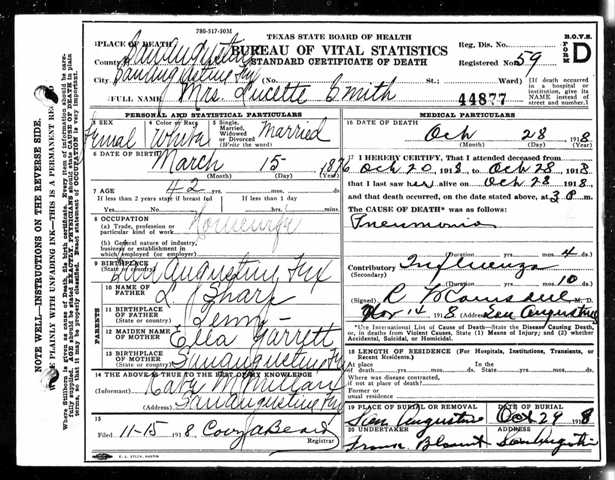 780-517-903M
TEXAS STATE BOARD OF HEALTH
BUREAU OF VITAL STATISTICS
STANDARD CERTIFICATE OF DEATH
B.O.V.S.
FORM D
Reg. Dis. No.
Registered No. 59
PLACE OF DEATH
County San Augustine
City San Augustine Tex (No. St.; Ward)
[If death occurred in a hospital or institution, give its NAME instead of street and number.]
FULL NAME Mrs. Lucette Smith
44877
PERSONAL AND STATISTICAL PARTICULARS
3 SEX
4 Color or Race
5 Single, Married, Widowed or Divorced (Write the word)
Femal White Married
6 DATE OF BIRTH
March 15 1876
(Month) (Day) (Year)
7 AGE
42 yrs. mos. ds.
If less than 2 years state if breast fed
If less than 1 day
Yes No hrs. min.
8 OCCUPATION
(a) Trade, profession or particular kind of work
Housewife
(b) General nature of industry, business or establishment in which employed (or employer)
9 BIRTHPLACE (State or country)
San Augustine Tex
PARENTS
10 NAME OF FATHER
L Sharp
11 BIRTHPLACE OF FATHER (State or country)
Tenn
12 MAIDEN NAME OF MOTHER
Ella Garrett
13 BIRTHPLACE OF MOTHER (State or country)
San Augustine Tex
14 THE ABOVE IS TRUE TO THE BEST OF MY KNOWLEDGE
(Informant) McMillan
(Address) San Augustine Tex
15
Filed 11-15 1918
Registrar
MEDICAL PARTICULARS
16 DATE OF DEATH
Oct 28 1918
(Month) (Day) (Year)
17 I HEREBY CERTIFY, That I attended deceased from
Oct 20, 1918, to Oct 28, 1918,
that I last saw her alive on Oct 28 1918,
and that death occurred, on the date stated above, at 3 m.
The CAUSE OF DEATH* was as follows:
Pneumonia
(Duration yrs. mos. 4 ds.
Contributory Influenza
(Secondary)
(Duration yrs. mos. 10 ds.
(Signed) M. D.
Nov 14 1918 (Address) San Augustine
*Use International List of Cause of Death—State the Disease Causing Death, or, in deaths from Violent Causes, State (1) Means of Injury; and (2) whether Accidental, Suicidal, or Homicidal.
18 LENGTH OF RESIDENCE (For Hospitals, Institutions, Transients, or Recent Residents)
At place of death yrs. mos. ds. In the State yrs. mos. ds.
Where was disease contracted, if not at place of death?
Former or usual residence
19 PLACE OF BURIAL OR REMOVAL
DATE OF BURIAL
San Augustine Oct 29 1918
20 UNDERTAKER
ADDRESS
Frank Blount San Augustine
NOTE WELL—INSTRUCTIONS ON THE REVERSE SIDE.
PLAINLY WITH UNFADING INK—THIS IS A PERMANENT